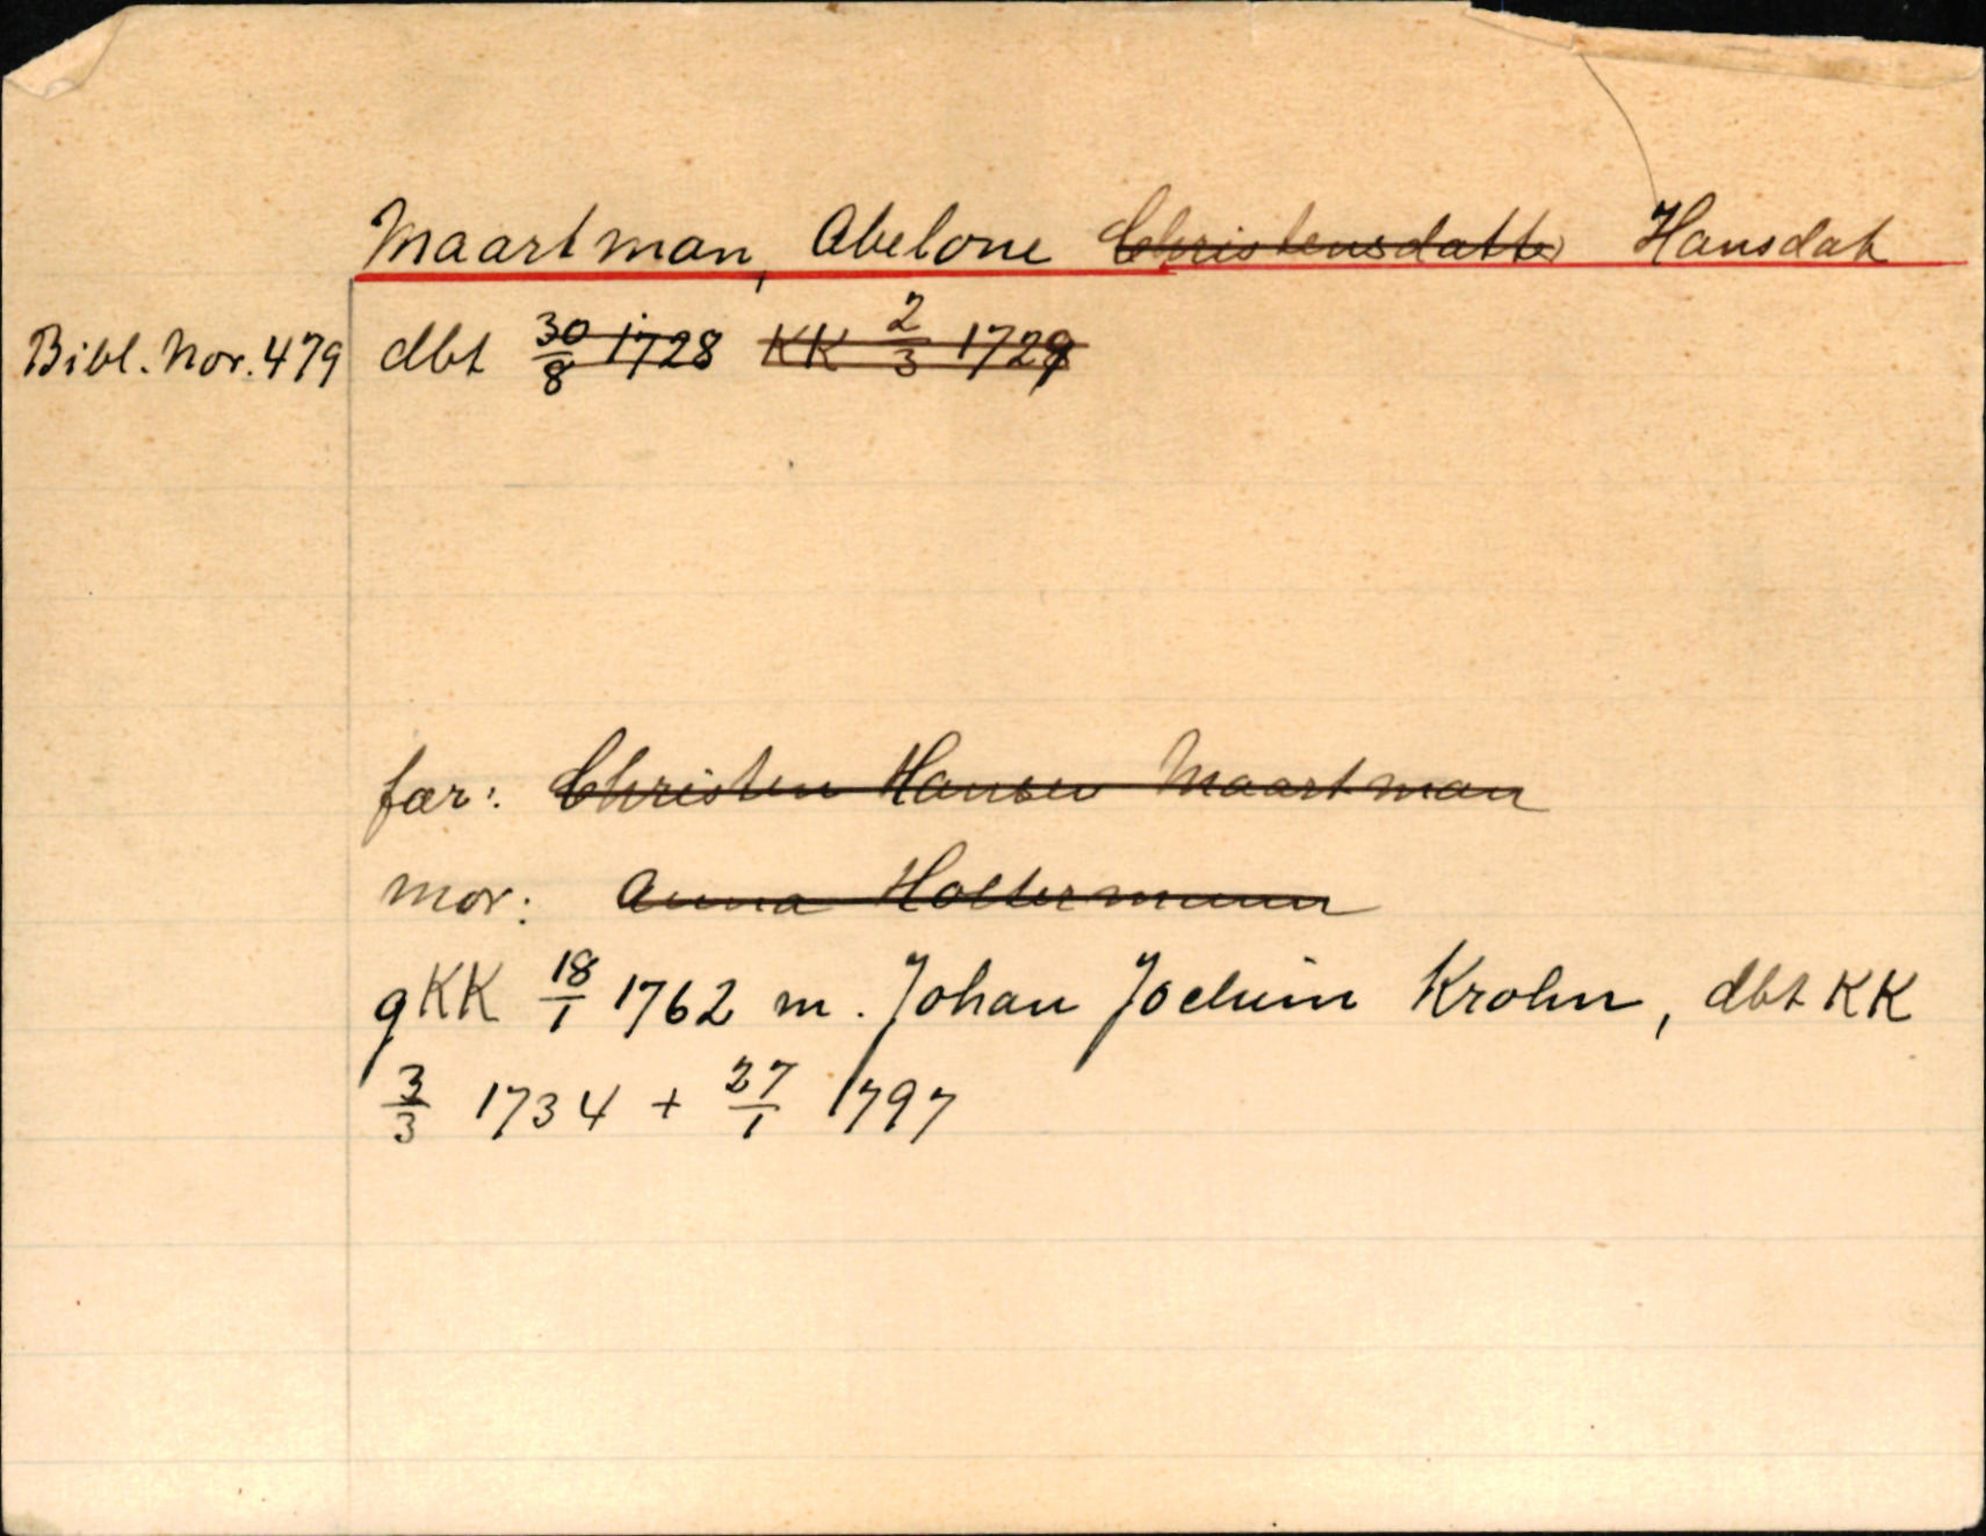 Maartman, Abelone Christensdatter Hansdat
Bibl. Nor. 479 dbt 30/8 1728 KK 2/3 1729
far: Christen Hansen Maartman
mor: Anna Holtermann
gKK 18/1 1762 m. Johan Jochim Krohn, dbt KK
3/3 1734 + 27/1 1797